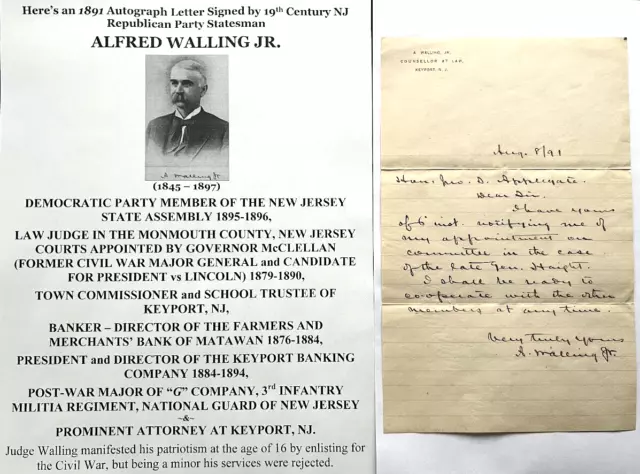 Here's an 1891 Autograph Letter Signed by 19th Century NJ
Republican Party Statesman
ALFRED WALLING JR.
A Walling Jr
(1845 – 1897)
DEMOCRATIC PARTY MEMBER OF THE NEW JERSEY
STATE ASSEMBLY 1895-1896,
LAW JUDGE IN THE MONMOUTH COUNTY, NEW JERSEY
COURTS APPOINTED BY GOVERNOR McCLELLAN
(FORMER CIVIL WAR MAJOR GENERAL and CANDIDATE
FOR PRESIDENT vs LINCOLN) 1879-1890,
TOWN COMMISSIONER and SCHOOL TRUSTEE OF
KEYPORT, NJ,
BANKER – DIRECTOR OF THE FARMERS AND
MERCHANTS' BANK OF MATAWAN 1876-1884,
PRESIDENT and DIRECTOR OF THE KEYPORT BANKING
COMPANY 1884-1894,
POST-WAR MAJOR OF "G" COMPANY, 3rd INFANTRY
MILITIA REGIMENT, NATIONAL GUARD OF NEW JERSEY
-&-
PROMINENT ATTORNEY AT KEYPORT, NJ.
Judge Walling manifested his patriotism at the age of 16 by enlisting for
the Civil War, but being a minor his services were rejected.
A. WALLING, JR.
COUNSELLOR AT LAW,
KEYPORT, N. J.
Aug. 8/91
Hon. Jno. D. Applegate.
Dear Sir.
I have yours
of 6 inst. notifying me of
my appointment on
committee in the case
of the late Gen. Haight.
I shall be ready to
cooperate with the other
members at any time.
Very truly yours
A. Walling Jr.